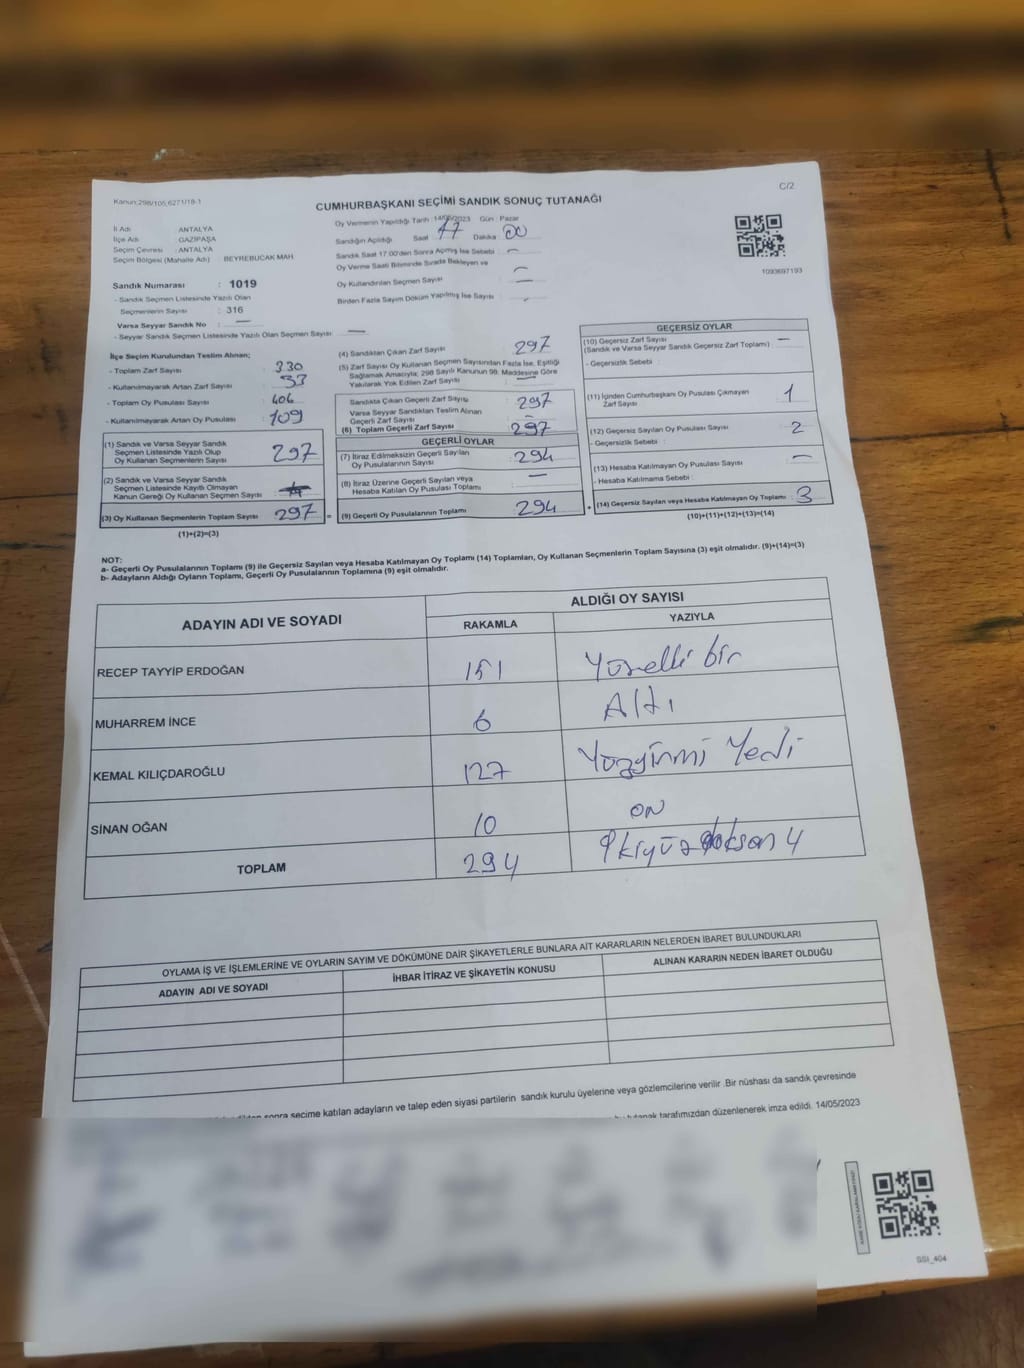 Kanun:298/105;6271/18-1
C/2
CUMHURBAŞKANI SEÇİMİ SANDIK SONUÇ TUTANAĞI
İl Adı : ANTALYA
İlçe Adı : GAZİPAŞA
Seçim Çevresi : ANTALYA
Seçim Bölgesi (Mahalle Adı) : BEYREBUCAK MAH.
Sandık Numarası : 1019
- Sandık Seçmen Listesinde Yazılı Olan
Seçmenlerin Sayısı : 316
Varsa Seyyar Sandık No : —
- Seyyar Sandık Seçmen Listesinde Yazılı Olan Seçmen Sayısı: —
Oy Vermenin Yapıldığı Tarih :14/05/2023 Gün : Pazar
Sandığın Açıldığı Saat 17 Dakika 00
Sandık Saat 17:00'den Sonra Açmış İse Sebebi : —
Oy Verme Saati Bitiminde Sırada Bekleyen ve
Oy Kullandırılan Seçmen Sayısı : —
Birden Fazla Sayım Döküm Yapılmış İse Sayısı : -
1093697193
İlçe Seçim Kurulundan Teslim Alınan;
- Toplam Zarf Sayısı : 330
- Kullanılmayarak Artan Zarf Sayısı : 33
- Toplam Oy Pusulası Sayısı : 406
- Kullanılmayarak Artan Oy Pusulası : 109
(1) Sandık ve Varsa Seyyar Sandık
Seçmen Listesinde Yazılı Olup
Oy Kullanan Seçmenlerin Sayısı : 297
(2) Sandık ve Varsa Seyyar Sandık
Seçmen Listesinde Kayıtlı Olmayan
Kanun Gereği Oy Kullanan Seçmen Sayısı :
(3) Oy Kullanan Seçmenlerin Toplam Sayısı : 297 =
(1)+(2)=(3)
(4) Sandıktan Çıkan Zarf Sayısı : 297
(5) Zarf Sayısı Oy Kullanan Seçmen Sayısından Fazla İse, Eşitliği
Sağlamak Amacıyla; 298 Sayılı Kanunun 98. Maddesine Göre
Yakılarak Yok Edilen Zarf Sayısı : —
Sandıkta Çıkan Geçerli Zarf Sayısı : 297
Varsa Seyyar Sandıktan Teslim Alınan
Geçerli Zarf Sayısı : —
(6) Toplam Geçerli Zarf Sayısı : 297
GEÇERLİ OYLAR
(7) İtiraz Edilmeksizin Geçerli Sayılan
Oy Pusulalarının Sayısı : 294
(8) İtiraz Üzerine Geçerli Sayılan veya
Hesaba Katılan Oy Pusulası Toplamı : —
(9) Geçerli Oy Pusulalarının Toplamı : 294 +
GEÇERSİZ OYLAR
(10) Geçersiz Zarf Sayısı
(Sandık ve Varsa Seyyar Sandık Geçersiz Zarf Toplamı) : —
- Geçersizlik Sebebi :
(11) İçinden Cumhurbaşkanı Oy Pusulası Çıkmayan
Zarf Sayısı : 1
(12) Geçersiz Sayılan Oy Pusulası Sayısı : 2
- Geçersizlik Sebebi :
(13) Hesaba Katılmayan Oy Pusulası Sayısı : —
- Hesaba Katılmama Sebebi :
(14) Geçersiz Sayılan veya Hesaba Katılmayan Oy Toplamı : 3
(10)+(11)+(12)+(13)=(14)
NOT:
a- Geçerli Oy Pusulalarının Toplamı (9) ile Geçersiz Sayılan veya Hesaba Katılmayan Oy Toplamı (14) Toplamları, Oy Kullanan Seçmenlerin Toplam Sayısına (3) eşit olmalıdır. (9)+(14)=(3)
b- Adayların Aldığı Oyların Toplamı, Geçerli Oy Pusulalarının Toplamına (9) eşit olmalıdır.
ADAYIN ADI VE SOYADI
ALDIĞI OY SAYISI
RAKAMLA YAZIYLA
RECEP TAYYİP ERDOĞAN 151 Yüzelli bir
MUHARREM İNCE 6 Altı
KEMAL KILIÇDAROĞLU 127 Yüzyirmi Yedi
SİNAN OĞAN 10 ON
TOPLAM 294 İkiyüz doksan 4
OYLAMA İŞ VE İŞLEMLERİNE VE OYLARIN SAYIM VE DÖKÜMÜNE DAİR ŞİKAYETLERLE BUNLARA AİT KARARLARIN NELERDEN İBARET BULUNDUKLARI
ADAYIN ADI VE SOYADI İHBAR İTİRAZ VE ŞİKAYETİN KONUSU ALINAN KARARIN NEDEN İBARET OLDUĞU
sonra seçime katılan adayların ve talep eden siyasi partilerin sandık kurulu üyelerine veya gözlemcilerine verilir .Bir nüshası da sandık çevresinde
bu tutanak tarafımızdan düzenlenerek imza edildi. 14/05/2023
SSİ_404